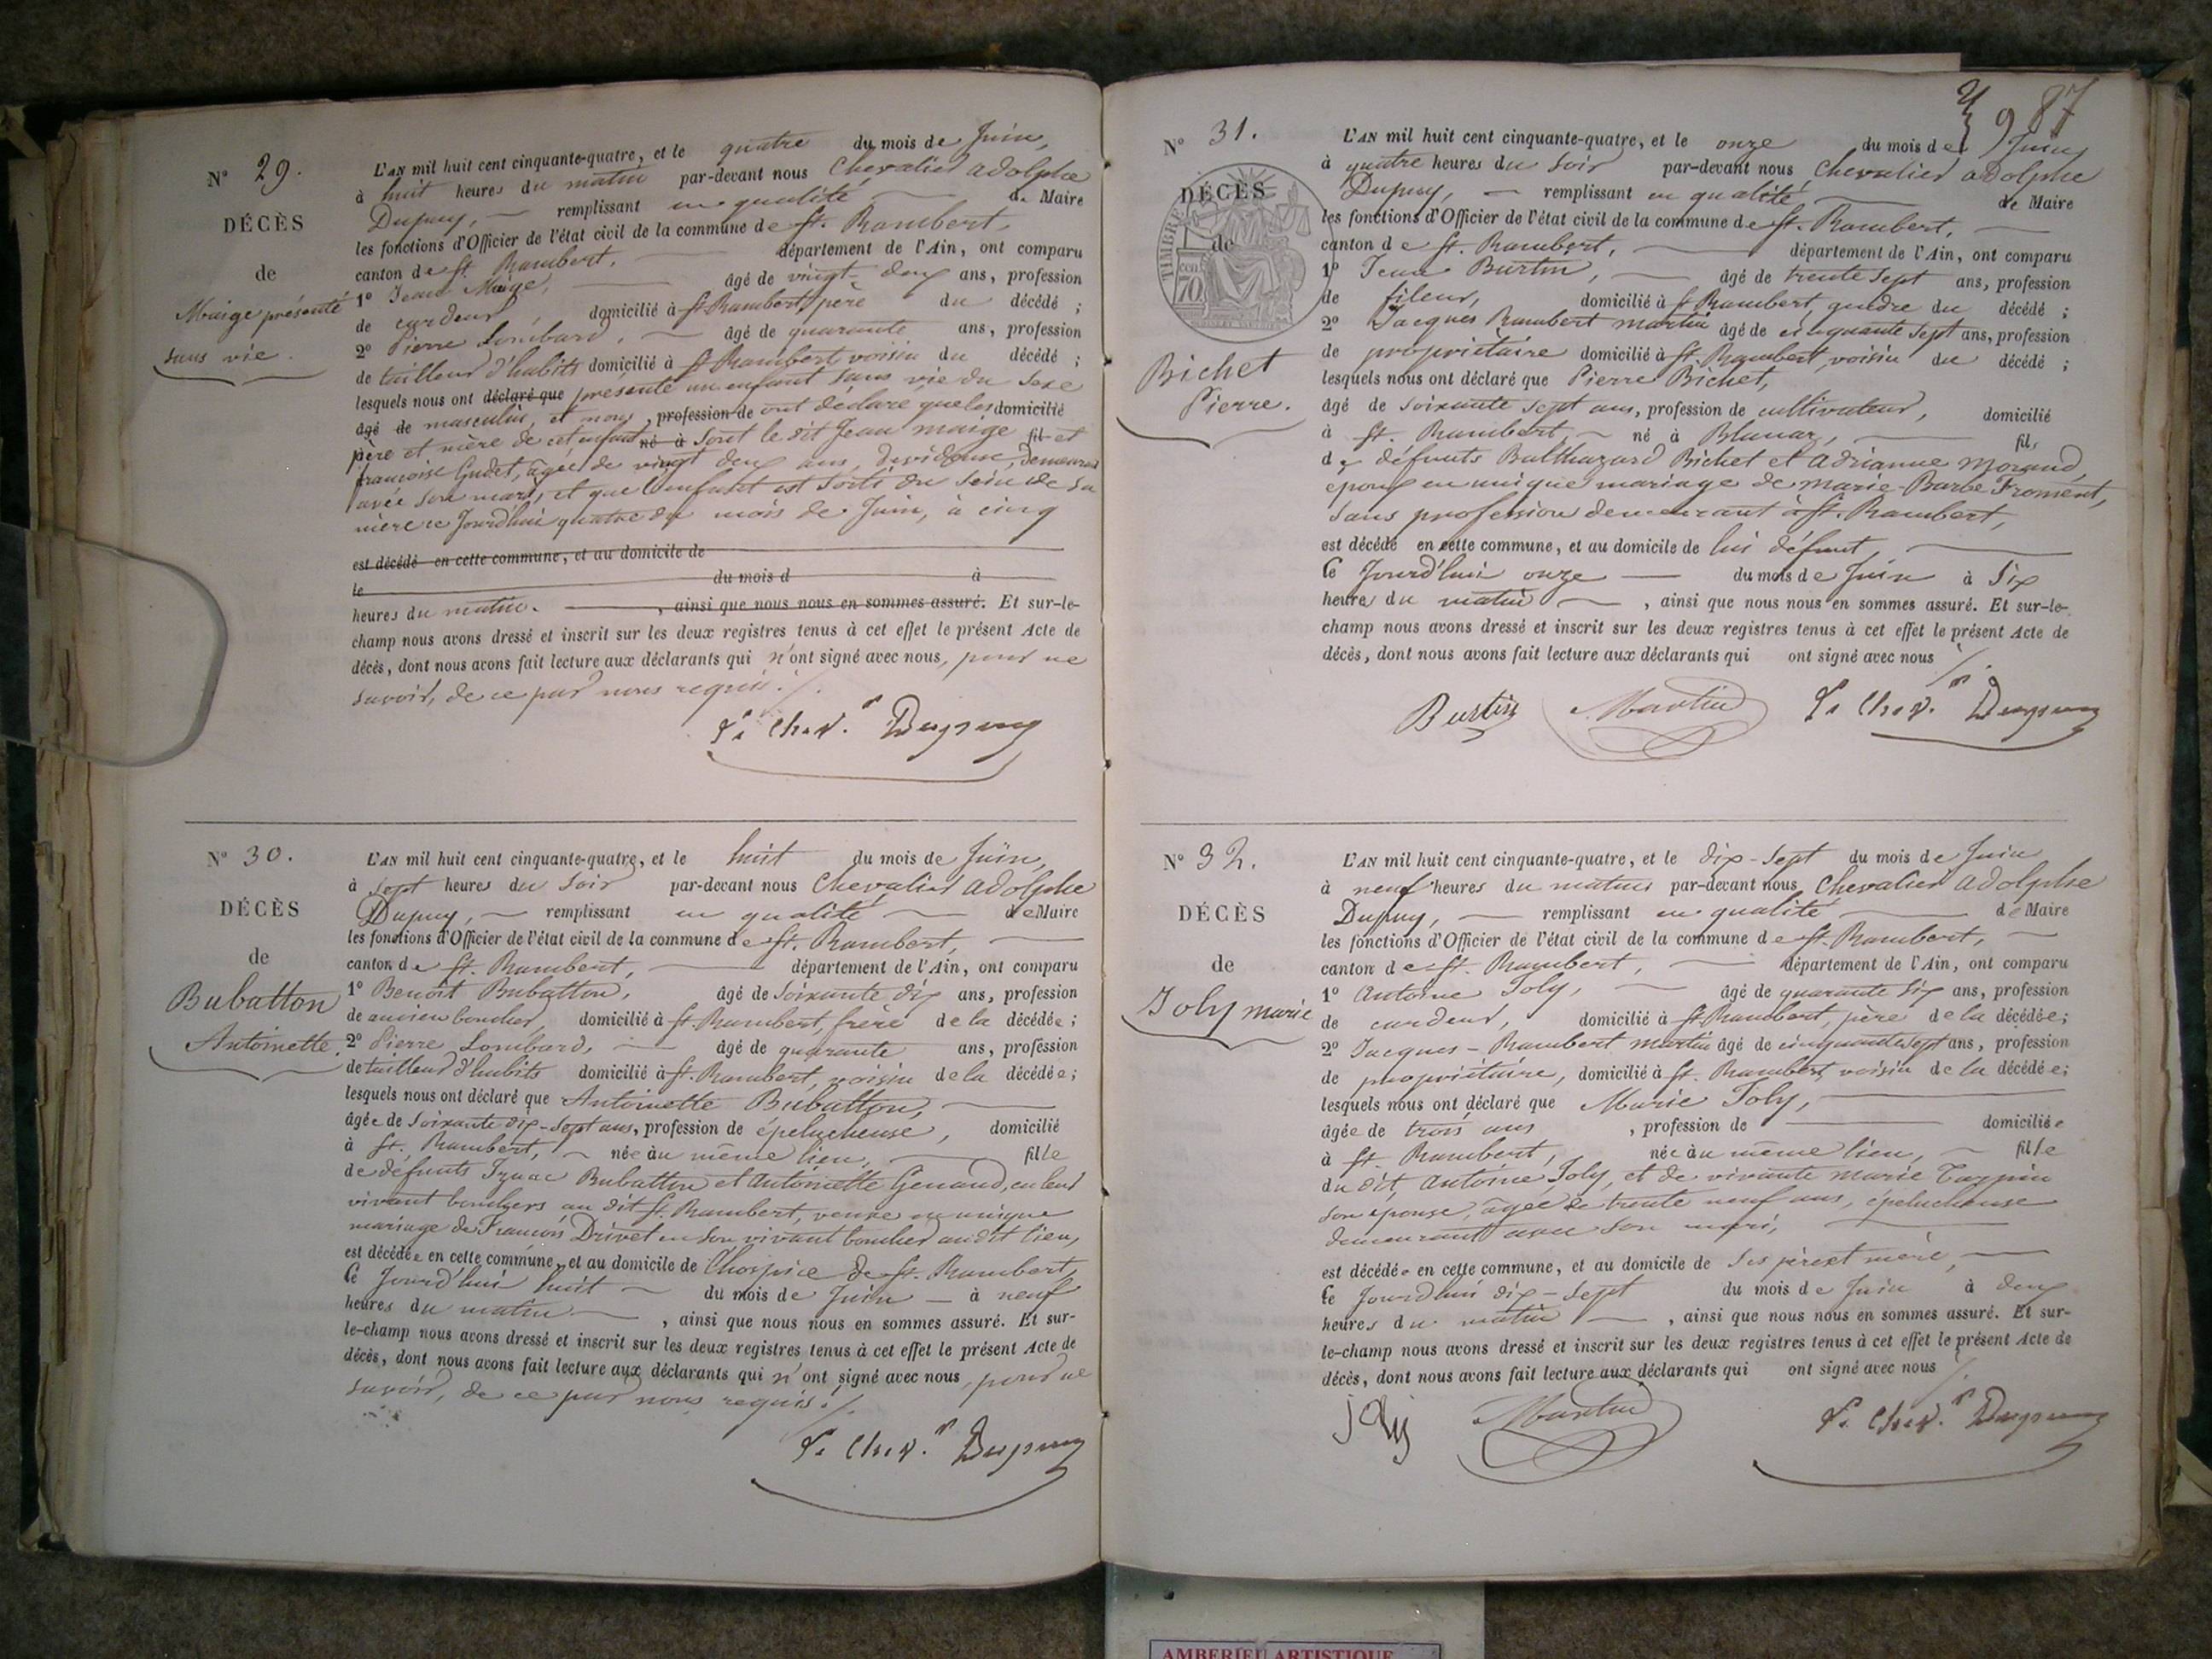 N° 29.
DÉCÈS
de
Maige présenté
sans vie.
L'AN mil huit cent cinquante-quatre, et le quatre du mois de Juin,
à huit heures du matin par-devant nous Chevalier Adolphe
Dupuy, remplissant en qualité de Maire
les fonctions d'Officier de l'état civil de la commune de St. Rambert,
canton de St. Rambert, département de l'Ain, ont comparu
1° Jean Maige, âgé de vingt-deux ans, profession
de cardeur, domicilié à St Rambert, père du décédé ;
2° Pierre Lombard, âgé de quarante ans, profession
de tailleur d'habits domicilié à St Rambert, voisin du décédé ;
lesquels nous ont déclaré que présenté un enfant sans vie du sexe
âgé de masculin, et nous, profession de ont déclaré que les domicilié
père et mère de cet enfant né à sont le dit Jean Maige fil et
françoise Gudet, agée de vingt deux ans, devideuse, demeurant
avec son mari, et que l'enfant est sorti du sein de sa
mère ce Jourd'hui quatre du mois de Juin, à cinq
est décédé en cette commune, et au domicile de
le du mois d à
heures du matin. , ainsi que nous nous en sommes assuré. Et sur-le-
champ nous avons dressé et inscrit sur les deux registres tenus à cet effet le présent Acte de
décès, dont nous avons fait lecture aux déclarants qui n'ont signé avec nous, pour ne
savoir, de ce par nous requis ./.
Le Chev.er Dupuy
N° 30.
DÉCÈS
de
Bubatton
Antoinette.
L'AN mil huit cent cinquante-quatre, et le huit du mois de Juin,
à sept heures du soir par-devant nous Chevalier Adolphe
Dupuy, remplissant en qualité de Maire
les fonctions d'Officier de l'état civil de la commune de St. Rambert,
canton de St. Rambert, département de l'Ain, ont comparu
1° Benoit Bubatton, âgé de soixante dix ans, profession
de ancien boucher, domicilié à St. Rambert, frère de la décédée ;
2° Pierre Lombard, âgé de quarante ans, profession
de tailleur d'habits domicilié à St. Rambert, voisin de la décédée ;
lesquels nous ont déclaré que Antoinette Bubatton,
âgée de soixante dix-sept ans, profession de épelucheuse, domicilié
à St. Rambert, née au même lieu, fille
de défunts Izaac Bubatton et Antoinette Genaud, en leur
vivant bouchers au dit St. Rambert, veuve en unique
mariage de François Drivet en son vivant boucher au dit lieu,
est décédée en cette commune, et au domicile de l'hospice de St. Rambert,
le Jourd'hui huit du mois de Juin à neuf
heures du matin , ainsi que nous nous en sommes assuré. Et sur-
le-champ nous avons dressé et inscrit sur les deux registres tenus à cet effet le présent Acte de
décès, dont nous avons fait lecture aux déclarants qui n'ont signé avec nous, pour ne
savoir, de ce par nous requis ./.
Le Chev.er Dupuy
87
N° 31.
DÉCÈS
de
TIMBRE
cen
70
Bichet
Pierre.
L'AN mil huit cent cinquante-quatre, et le onze du mois de Juin
à quatre heures du soir par-devant nous Chevalier Adolphe
Dupuy, remplissant en qualité de Maire
les fonctions d'Officier de l'état civil de la commune de St. Rambert,
canton de St. Rambert, département de l'Ain, ont comparu
1° Jean Burtin, âgé de trente sept ans, profession
de fileur, domicilié à St Rambert, gendre du décédé ;
2° Jacques Rambert Martin âgé de cinquante sept ans, profession
de propriétaire domicilié à St. Rambert, voisin du décédé ;
lesquels nous ont déclaré que Pierre Bichet,
âgé de soixante sept ans, profession de cultivateur, domicilié
à St. Rambert, né à Blanaz, fils
de défunts Balthazard Bichet et Adrianne Morand,
epoux en unique mariage de Marie-Barbe Froment,
sans profession demeurant à St. Rambert,
est décédé en cette commune, et au domicile de lui défunt,
le Jourd'hui onze du mois de Juin à six
heures du matin , ainsi que nous nous en sommes assuré. Et sur-le-
champ nous avons dressé et inscrit sur les deux registres tenus à cet effet le présent Acte de
décès, dont nous avons fait lecture aux déclarants qui ont signé avec nous ./.
Burtin Martin Le Chev.er Dupuy
N° 32.
DÉCÈS
de
Joly marie
L'AN mil huit cent cinquante-quatre, et le dix-sept du mois de Juin
à neuf heures du matin par-devant nous Chevalier Adolphe
Dupuy, remplissant en qualité de Maire
les fonctions d'Officier de l'état civil de la commune de St. Rambert,
canton de St. Rambert, département de l'Ain, ont comparu
1° Antoine Joly, âgé de quarante six ans, profession
de cardeur, domicilié à St Rambert, père de la décédée ;
2° Jacques-Rambert Martin âgé de cinquante sept ans, profession
de propriétaire, domicilié à St. Rambert, voisin de la décédée ;
lesquels nous ont déclaré que Marie Joly,
âgée de trois ans , profession de domiciliée
à St. Rambert, née au même lieu, fille
du dit Antoine Joly, et de vivante Marie Tarpin
son épouse, agée de trente neuf ans, épelucheuse
demeurant avec son mari,
est décédée en cette commune, et au domicile de ses père et mère,
le Jourd'hui dix-sept du mois de Juin à deux
heures du matin , ainsi que nous nous en sommes assuré. Et sur-
le-champ nous avons dressé et inscrit sur les deux registres tenus à cet effet le présent Acte de
décès, dont nous avons fait lecture aux déclarants qui ont signé avec nous ./.
joly Martin Le Chev.er Dupuy
AMBERIEU ARTISTIQUE